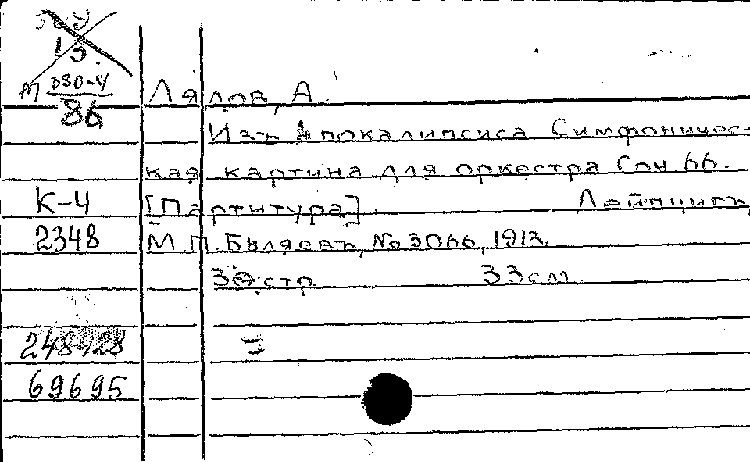 М D30-4
86
Лядов, А.
Изъ Апокалипсиса Симфоничес-
кая картина для оркестра Соч 66.
К-4
[Партитура] Лейпцигъ
2348
М.П. Бѣляевъ, No 3066, 1913.
стр 33 см
69695